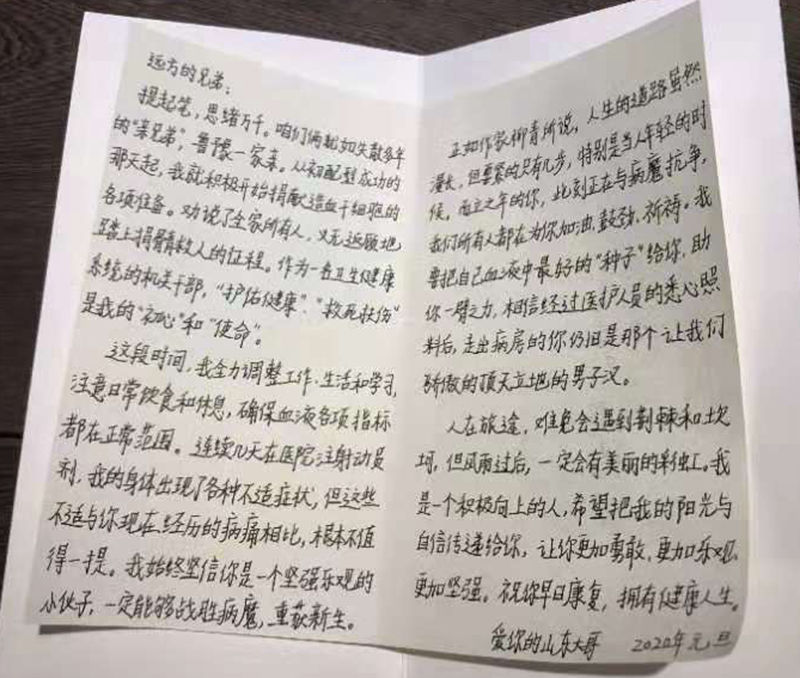 远方的兄弟：
提起笔，思绪万千。咱们俩就如失散多年
的“亲兄弟”，鲁豫一家亲。从初配型成功的
那天起，我就积极开始捐献造血干细胞的
各项准备。劝说了全家所有人，义无返顾地
踏上捐髓救人的征程。作为一名卫生健康
系统的机关干部，“护佑健康”、“救死扶伤”
是我的“初心”和“使命”。
这段时间，我全力调整工作、生活和学习，
注意日常饮食和休息，确保血液各项指标
都在正常范围。连续几天在医院注射动员
剂，我的身体出现了各种不适症状，但这些
不适与你现在经历的病痛相比，根本不值
得一提。我始终坚信你是一个坚强乐观的
小伙子，一定能够战胜病魔，重获新生。
正如作家柳青所说，人生的道路虽然
漫长，但要紧的只有几步，特别是当人年轻的时
候。而立之年的你，此刻正在与病魔抗争，
我们所有人都在为你加油、鼓劲、祈祷。我
要把自己血液中最好的“种子”给你，助
你一臂之力，相信经过医护人员的悉心照
料后，走出病房的你仍旧是那个让我们
骄傲的顶天立地的男子汉。
人在旅途，难免会遇到荆棘和坎
坷，但风雨过后，一定会有美丽的彩虹。我
是一个积极向上的人，希望把我的阳光与
自信传递给你，让你更加勇敢、更加乐观、
更加坚强。祝你早日康复，拥有健康人生。
爱你的山东大哥 2020年元旦